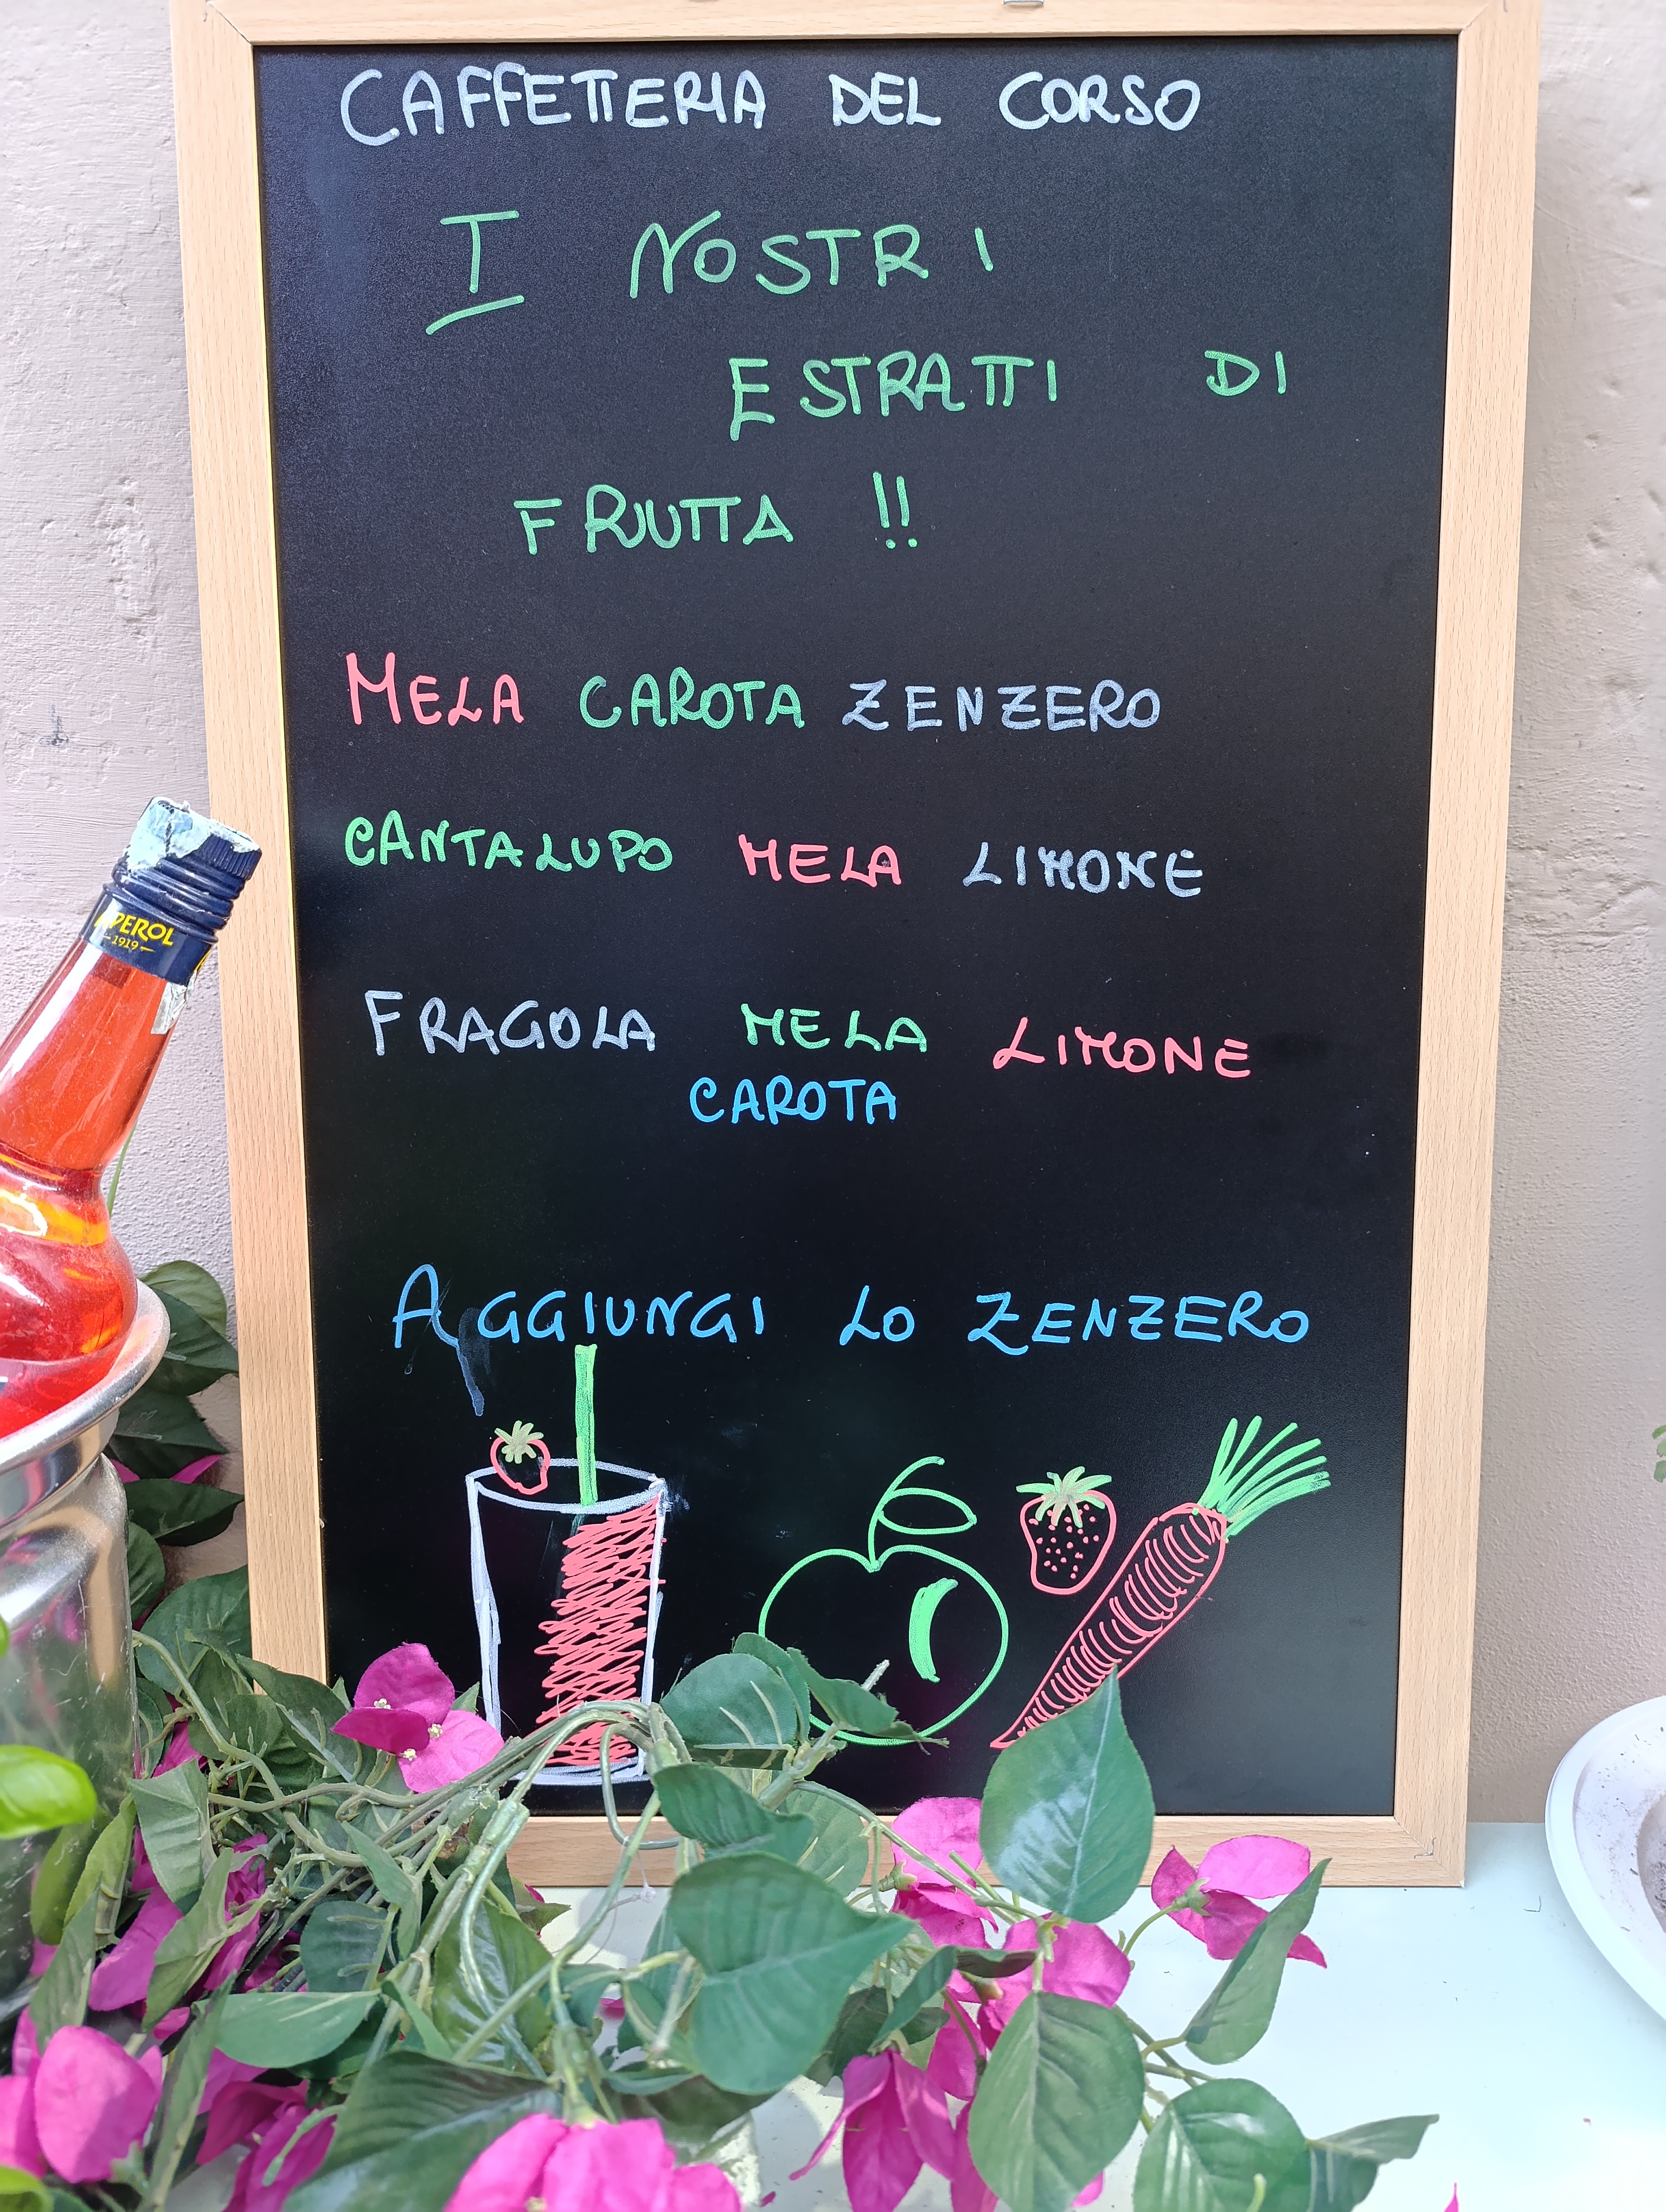 CAFFETTERIA DEL CORSO
I NOSTRI
ESTRATTI DI
FRUTTA !!
MELA CAROTA ZENZERO
CANTALUPO MELA LIMONE
FRAGOLA MELA LIMONE
CAROTA
AGGIUNGI LO ZENZERO
APEROL
1919